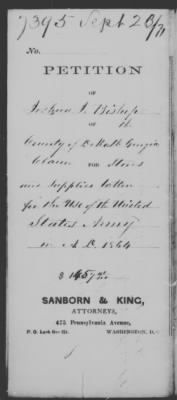 7395 Sept 20/71
No.
PETITION
OF
Joshua J. Bishop
OF
County of DeKalb Georgia
Claim FOR Stores
and Supplies taken
for the Use of the United
States Army
in A D. 1864
$
SANBORN & KING,
ATTORNEYS,
473 Pennsylvania Avenue,
P. O. Lock Box
WASHINGTON, D.